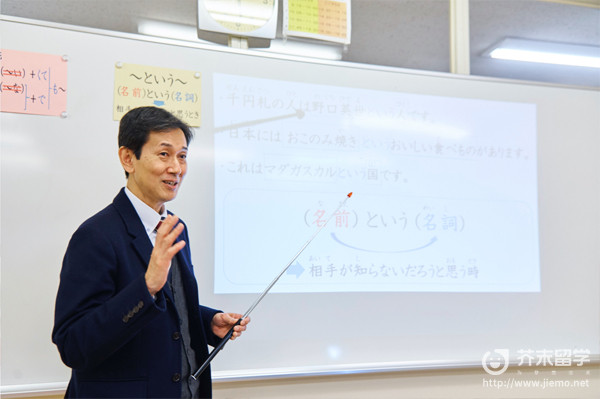 ～という～
(名前)という(名詞)
千円札の人は野口英世という人です。
日本には おこのみ焼きという おいしい食べものがあります。
これはマダガスカルという国です。
(名前)という(名詞)
➡相手が知らないだろうと思う時
芥末留学
http://www.jiemo.net